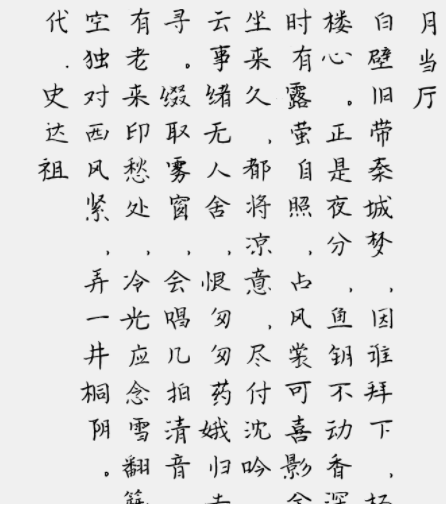 月当厅
白壁旧带秦城梦,因谁拜下,
楼心。正是夜分,鱼钥不动香深
时有露萤自照,占风裳可喜影
坐来久,都将凉意,尽付沈吟
云事绪无人舍,恨匆匆药娥归
寻。缀取雾窗,会唱几拍清音
有老来印愁处,冷光应念雪翻
空独对西风紧,弄一井桐阴。
代.史达祖